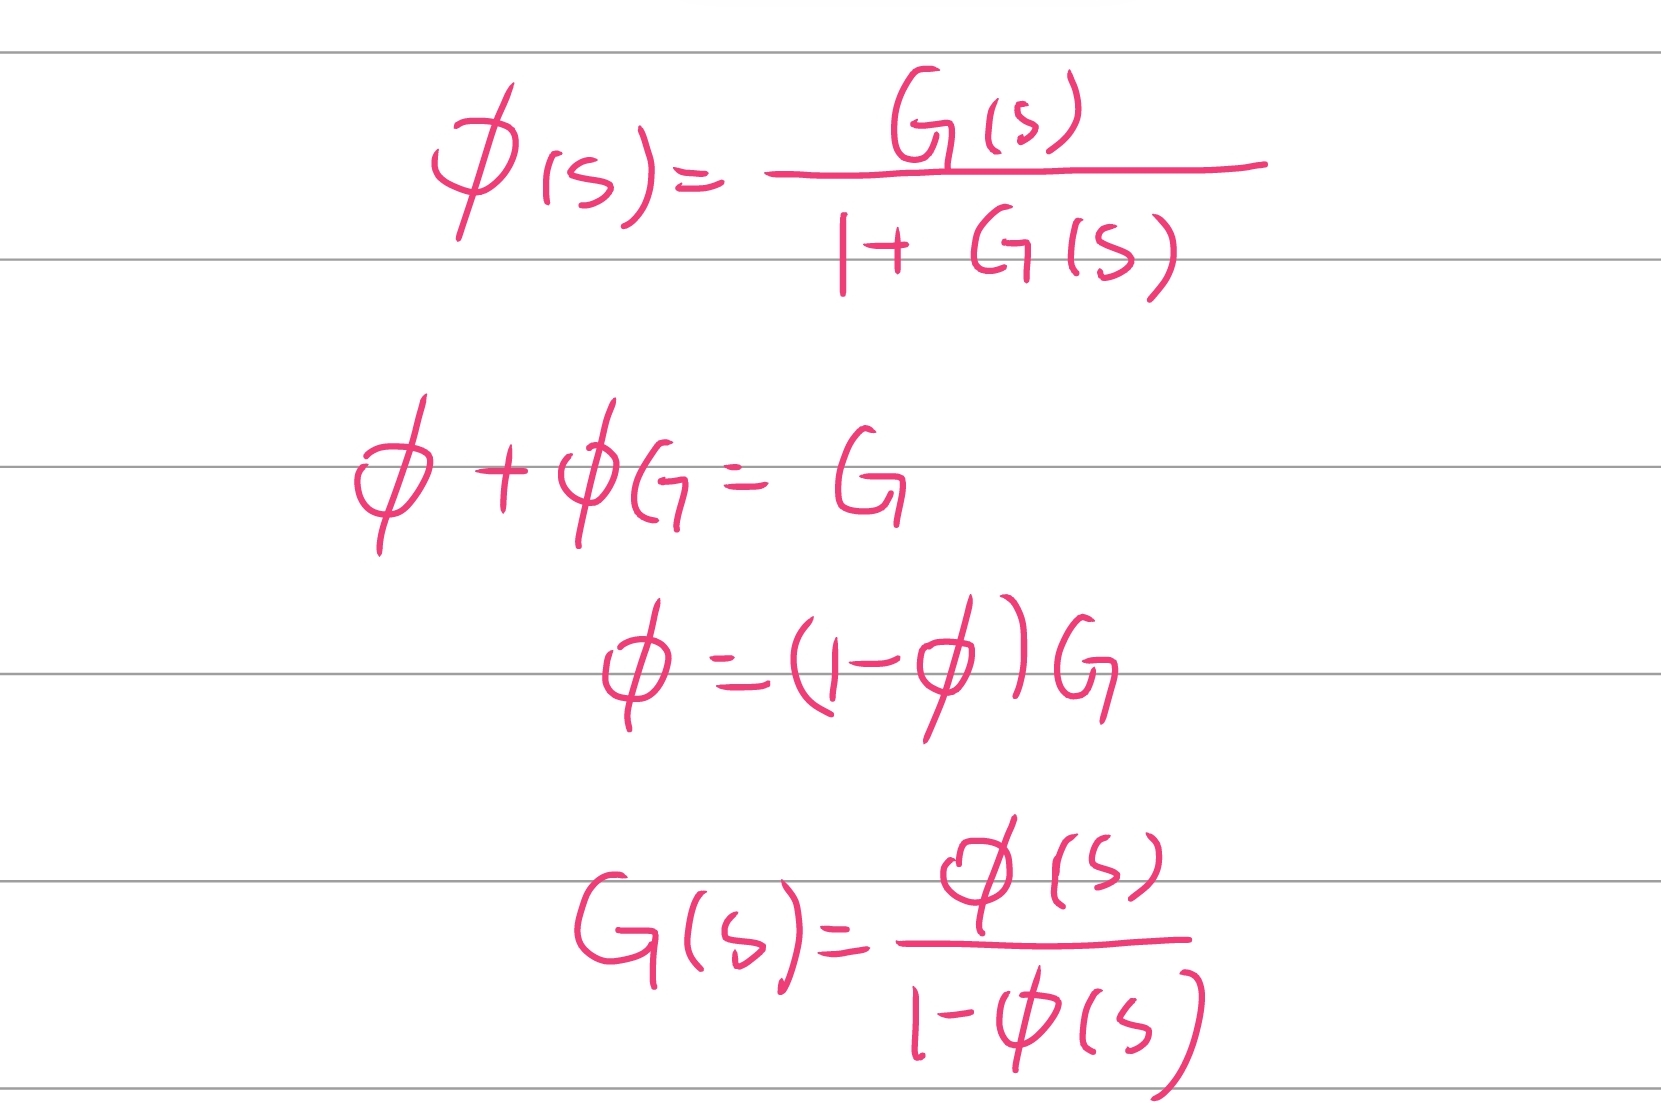 ϕ(s) = G(s) / (1 + G(s))
ϕ + ϕG = G
ϕ = (1 - ϕ)G
G(s) = ϕ(s) / (1 - ϕ(s))